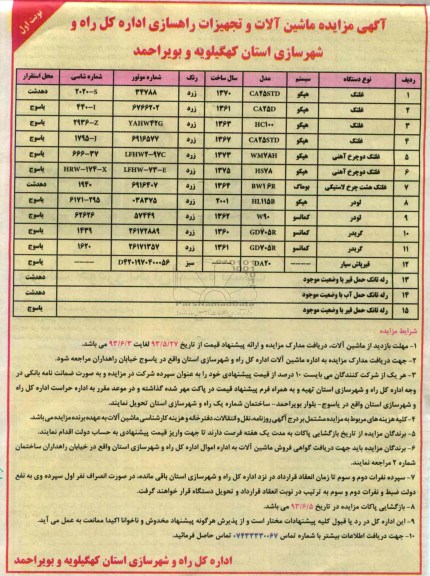 نوبت اول
آگهی مزایده ماشین آلات و تجهیزات راهسازی اداره کل راه و
شهرسازی استان کهگیلویه و بویراحمد
ردیف نوع دستگاه سیستم مدل سال ساخت رنگ شماره موتور شماره شاسی محل استقرار
۱ غلتک هپکو CA25STD ۱۳۷۰ زرد ۳۴۷۸۸ ۲۰۲۰-S دهدشت
۲ غلتک هپکو CA25D ۱۳۶۱ زرد ۶۷۶۶۲۰۲ ۴۴۰-I یاسوج
۳ غلتک هپکو HC100 ۱۳۶۳ زرد YAHW42G ۲۹۳۶-Z یاسوج
۴ غلتک هپکو CA25STD ۱۳۶۷ زرد ۶۹۱۶۵۷۷ ۱۷۹۵-J یاسوج
۵ غلتک دوچرخ آهنی هپکو WM7AH ۱۳۷۳ زرد LFHW2-97C ۶۶۶-۳۷ یاسوج
۶ غلتک دوچرخ آهنی هپکو HS7A ۱۳۷۵ زرد LFHW-73-E HRW-174-X یاسوج
۷ غلتک هشت چرخ لاستیکی بوماگ BW16R ۱۳۶۴ زرد ۶۹۱۶۴۰۷ ۱۹۴۰ دهدشت
۸ لودر هپکو HL115B ۲۰۰۱ زرد ۰۳۸۳۷۵ ۶۱۷۱-۲۹۵ یاسوج
۹ لودر کماتسو W90 ۱۳۶۲ زرد ۵۷۴۴۹ ۶۲۶۲۶ یاسوج
۱۰ گریدر کماتسو GD705R ۱۳۶۰ زرد ۲۶۱۷۲۸۸۹ ۱۴۳۹ یاسوج
۱۱ گریدر کماتسو GD705R ۱۳۶۱ زرد ۲۶۱۷۱۳۵۷ ۱۶۲۰ یاسوج
۱۲ قیرپاش سیار ----- DA20 ----- سبز D4201970400056 ----- یاسوج
۱۳ رله تانک حمل قیر با وضعیت موجود دهدشت
۱۴ رله تانک حمل آب با وضعیت موجود دهدشت
۱۵ رله تانک حمل قیر با وضعیت موجود یاسوج
شرایط مزایده
۱- مهلت بازدید از ماشین آلات، دریافت مدارک مزایده و ارائه پیشنهاد قیمت از تاریخ ۹۳/۵/۲۷ لغایت ۹۳/۶/۳ می باشد.
۲- جهت دریافت مدارک مزایده به اداره ماشین آلات اداره کل راه و شهرسازی استان واقع در یاسوج خیابان راهداران مراجعه شود.
۳- هر یک از شرکت کنندگان می بایست ۱۰ درصد از قیمت پیشنهادی خود را به عنوان سپرده شرکت در مزایده و به صورت ضمانت نامه بانکی در
وجه اداره کل راه و شهرسازی استان تهیه و به همراه فرم پیشنهاد قیمت در پاکت مهر شده گذاشته و در موعد مقرر به اداره حراست اداره کل راه
و شهرسازی استان واقع در یاسوج- بلوار بویراحمد- ساختمان شماره یک راه و شهرسازی استان تحویل نمایند.
۴- کلیه هزینه های مربوط به مزایده مشتمل بر درج آگهی روزنامه، نقل و انتقالات، دفترخانه و هزینه کارشناسی ماشین آلات به عهده برنده مزایده می باشد.
۵- برندگان مزایده از تاریخ بازگشایی پاکات به مدت یک هفته فرصت دارند تا جهت واریز قیمت پیشنهادی به حساب دولت اقدام نمایند.
۶- برندگان مزایده باید جهت دریافت گواهی فروش ماشین آلات به اداره اموال اداره کل راه و شهرسازی استان واقع در خیابان راهداران ساختمان
شماره ۲ مراجعه نمایند.
۷- سپرده نفرات دوم و سوم تا زمان انعقاد قرارداد در نزد اداره کل راه و شهرسازی استان باقی مانده، در صورت انصراف نفر اول سپرده وی به نفع
دولت ضبط و نفرات دوم و سوم به ترتیب در نوبت انعقاد قرارداد و تحویل دستگاه قرار خواهند گرفت.
۸- بازگشایی پاکات مزایده در تاریخ ۹۳/۶/۵ می باشد.
۹- این اداره کل در رد یا قبول کلیه پیشنهادات مختار است و از پذیرش هرگونه پیشنهاد مخدوش و ناخوانا اکیدا ممانعت به عمل می آید.
۱۰- جهت دریافت اطلاعات بیشتر با شماره تماس ۰۷۴۳۳۳۳۰۰۶۷ تماس حاصل فرمائید.
اداره کل راه و شهرسازی استان کهگیلویه و بویراحمد